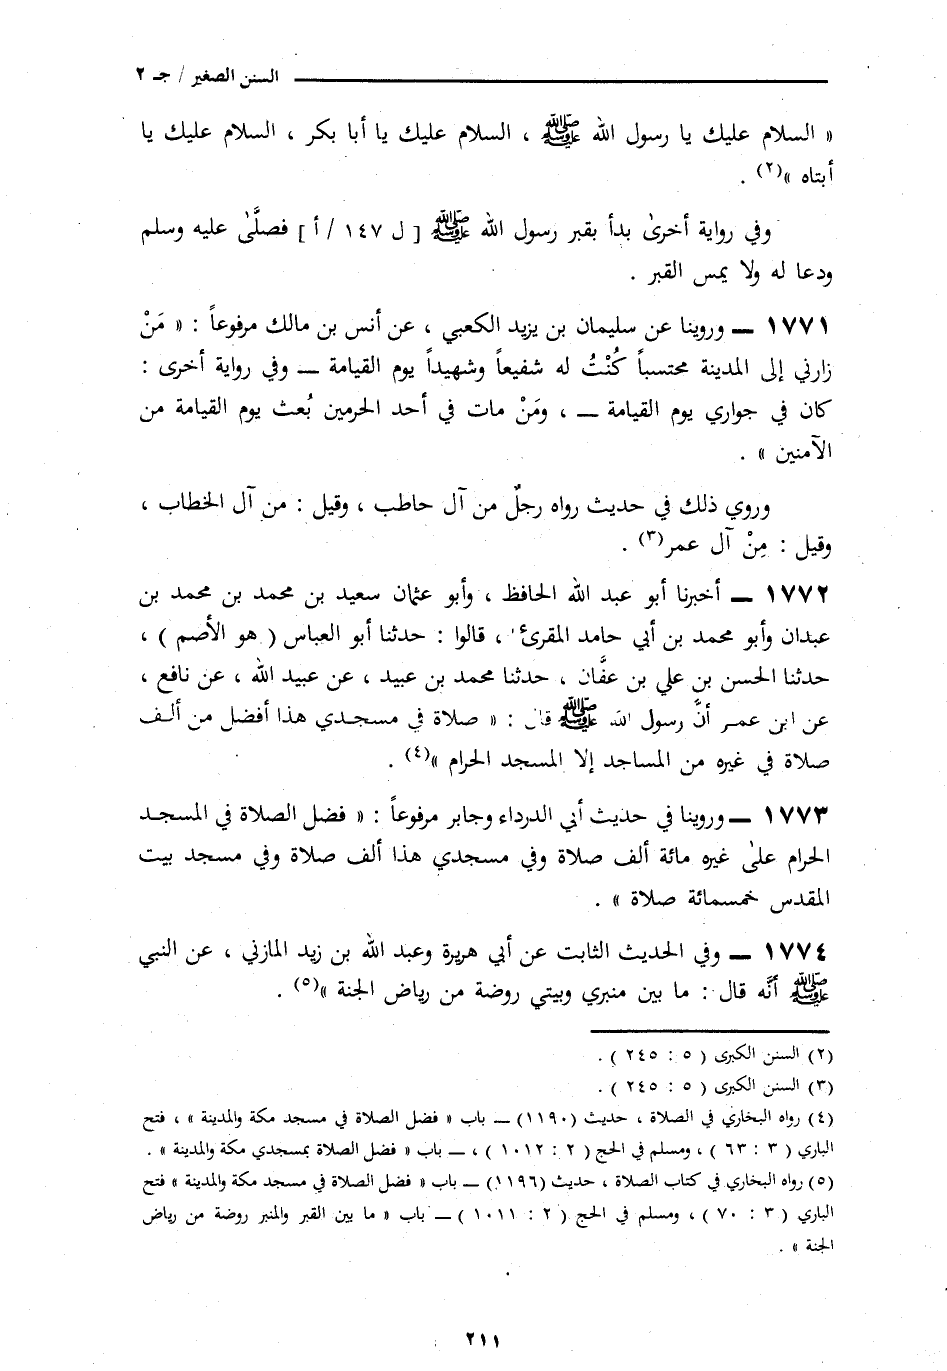 السنن الصغير / جـ ٢
« السلام عليك يا رسول الله ﷺ ، السلام عليك يا أبا بكر ، السلام عليك يا
أبتاه »(٢) .
وفي رواية أخرىٰ بدأ بقبر رسول الله ﷺ [ ل ١٤٧ / أ ] فصلَّىٰ عليه وسلم
ودعا له ولا يمس القبر .
١٧٧١ ــ وروينا عن سليمان بن يزيد الكعبي ، عن أنس بن مالك مرفوعاً : « مَنْ
زارني إلى المدينة محتسباً كُنْتُ له شفيعاً وشهيداً يوم القيامة ــ وفي رواية أخرى :
كان في جواري يوم القيامة ــ ، ومَنْ مات في أحد الحرمين بُعث يوم القيامة من
الآمنين » .
وروي ذلك في حديث رواه رجلٌ من آل حاطب ، وقيل : من آل الخطاب ،
وقيل : مِنْ آل عمر(٣) .
١٧٧٢ ــ أخبرنا أبو عبد الله الحافظ ، وأبو عثمان سعيد بن محمد بن محمد بن
عبدان وأبو محمد بن أبي حامد المقرئ ، قالوا : حدثنا أبو العباس ( هو الأصم ) ،
حدثنا الحسن بن علي بن عفَّان ، حدثنا محمد بن عبيد ، عن عبيد الله ، عن نافع ،
عن ابن عمـر أنَّ رسول الله ﷺ قال : « صلاة في مسجـدي هذا أفضل من ألـف
صلاة في غيره من المساجد إلا المسجد الحرام »(٤) .
١٧٧٣ ــ وروينا في حديث أبي الدرداء وجابر مرفوعاً : « فضل الصلاة في المسجـد
الحرام علىٰ غيره مائة ألف صلاة وفي مسجدي هذا ألف صلاة وفي مسجد بيت
المقدس خمسمائة صلاة » .
١٧٧٤ ــ وفي الحديث الثابت عن أبي هريرة وعبد الله بن زيد المازني ، عن النبي
ﷺ أنَّه قال : ما بين منبري وبيتي روضة من رياض الجنة »(٥) .
(٢) السنن الكبرى ( ٥ : ٢٤٥ ) .
(٣) السنن الكبرى ( ٥ : ٢٤٥ ) .
(٤) رواه البخاري في الصلاة ، حديث (١١٩٠) ــ باب « فضل الصلاة في مسجد مكة والمدينة » ، فتح
الباري ( ٣ : ٦٣ ) ، ومسلم في الحج ( ٢ : ١٠١٢ ) ، ــ باب « فضل الصلاة بمسجدي مكة والمدينة » .
(٥) رواه البخاري في كتاب الصلاة ، حديث (١١٩٦) ــ باب « فضل الصلاة في مسجد مكة والمدينة » فتح
الباري ( ٣ : ٧٠ ) ، ومسلم في الحج ( ٢ : ١٠١١ ) ــ باب « ما بين القبر والمنبر روضة من رياض
الجنة » .
٢١١